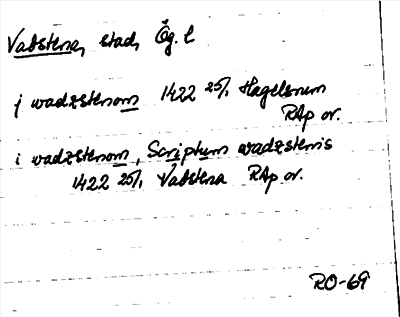 Vadstena, stad, Ög. l
j wadzstenom 1422 25/1 Hagelsrum
RAp or.
i wadzstenom, Scriptum wadzstenis
1422 25/1 Vadstena RAp or.
RO-69